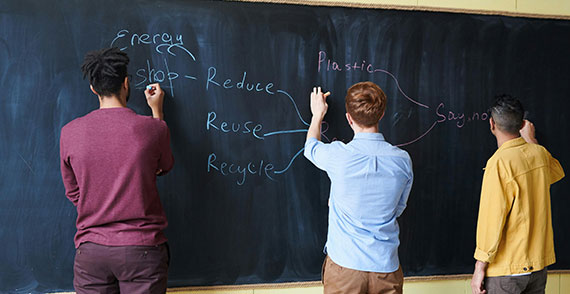 Energy
shop - Reduce
Reuse
Recycle
Plastic
R
Say, no